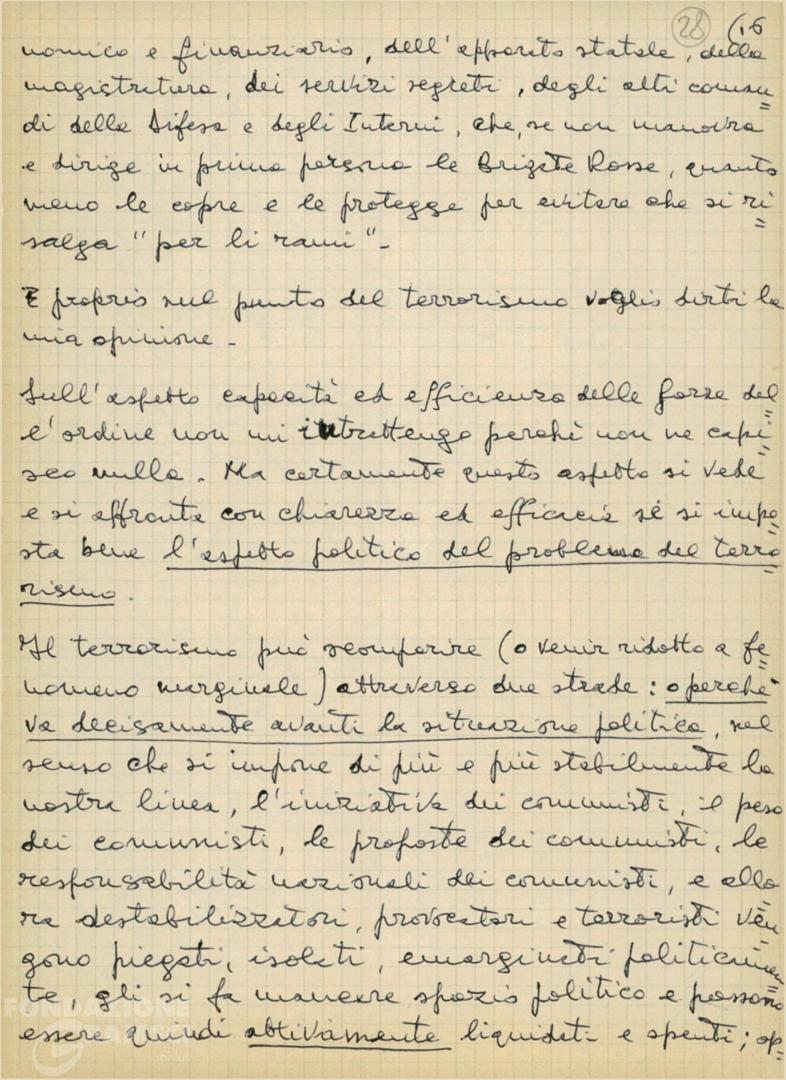 28 (16
nomico e finanziario, dell'apparato statale, della
magistratura, dei servizi segreti, degli alti coman=
di della Difesa e degli Interni, che, se non manovra
e dirige in prima persona le Brigate Rosse, quanto
meno le copre e le protegge per evitare che si ri=
salga "per li rami".
E proprio sul punto del terrorismo voglio dirti la
mia opinione.
Sull'aspetto capacità ed efficienza delle forze del=
l'ordine non mi intrattengo perché non ne capi=
sco nulla. Ma certamente questo aspetto si vede
e si affronta con chiarezza ed efficacia sé si impo=
sta bene l'aspetto politico del problema del terro=
rismo.
Il terrorismo può scomparire (o venir ridotto a fe=
nomeno marginale) attraverso due strade: o perché
va decisamente avanti la situazione politica, nel
senso che si impone di più e più stabilmente la
nostra linea, l'iniziativa dei comunisti, il peso
dei comunisti, le proposte dei comunisti, le
responsabilità nazionali dei comunisti, e allo=
ra destabilizzatori, provocatori e terroristi ven=
gono piegati, isolati, emarginati politicamen=
te, gli si fa mancare spazio politico e possono
essere quindi attivamente liquidati e spenti; op=
FONDAZIONE
onlus